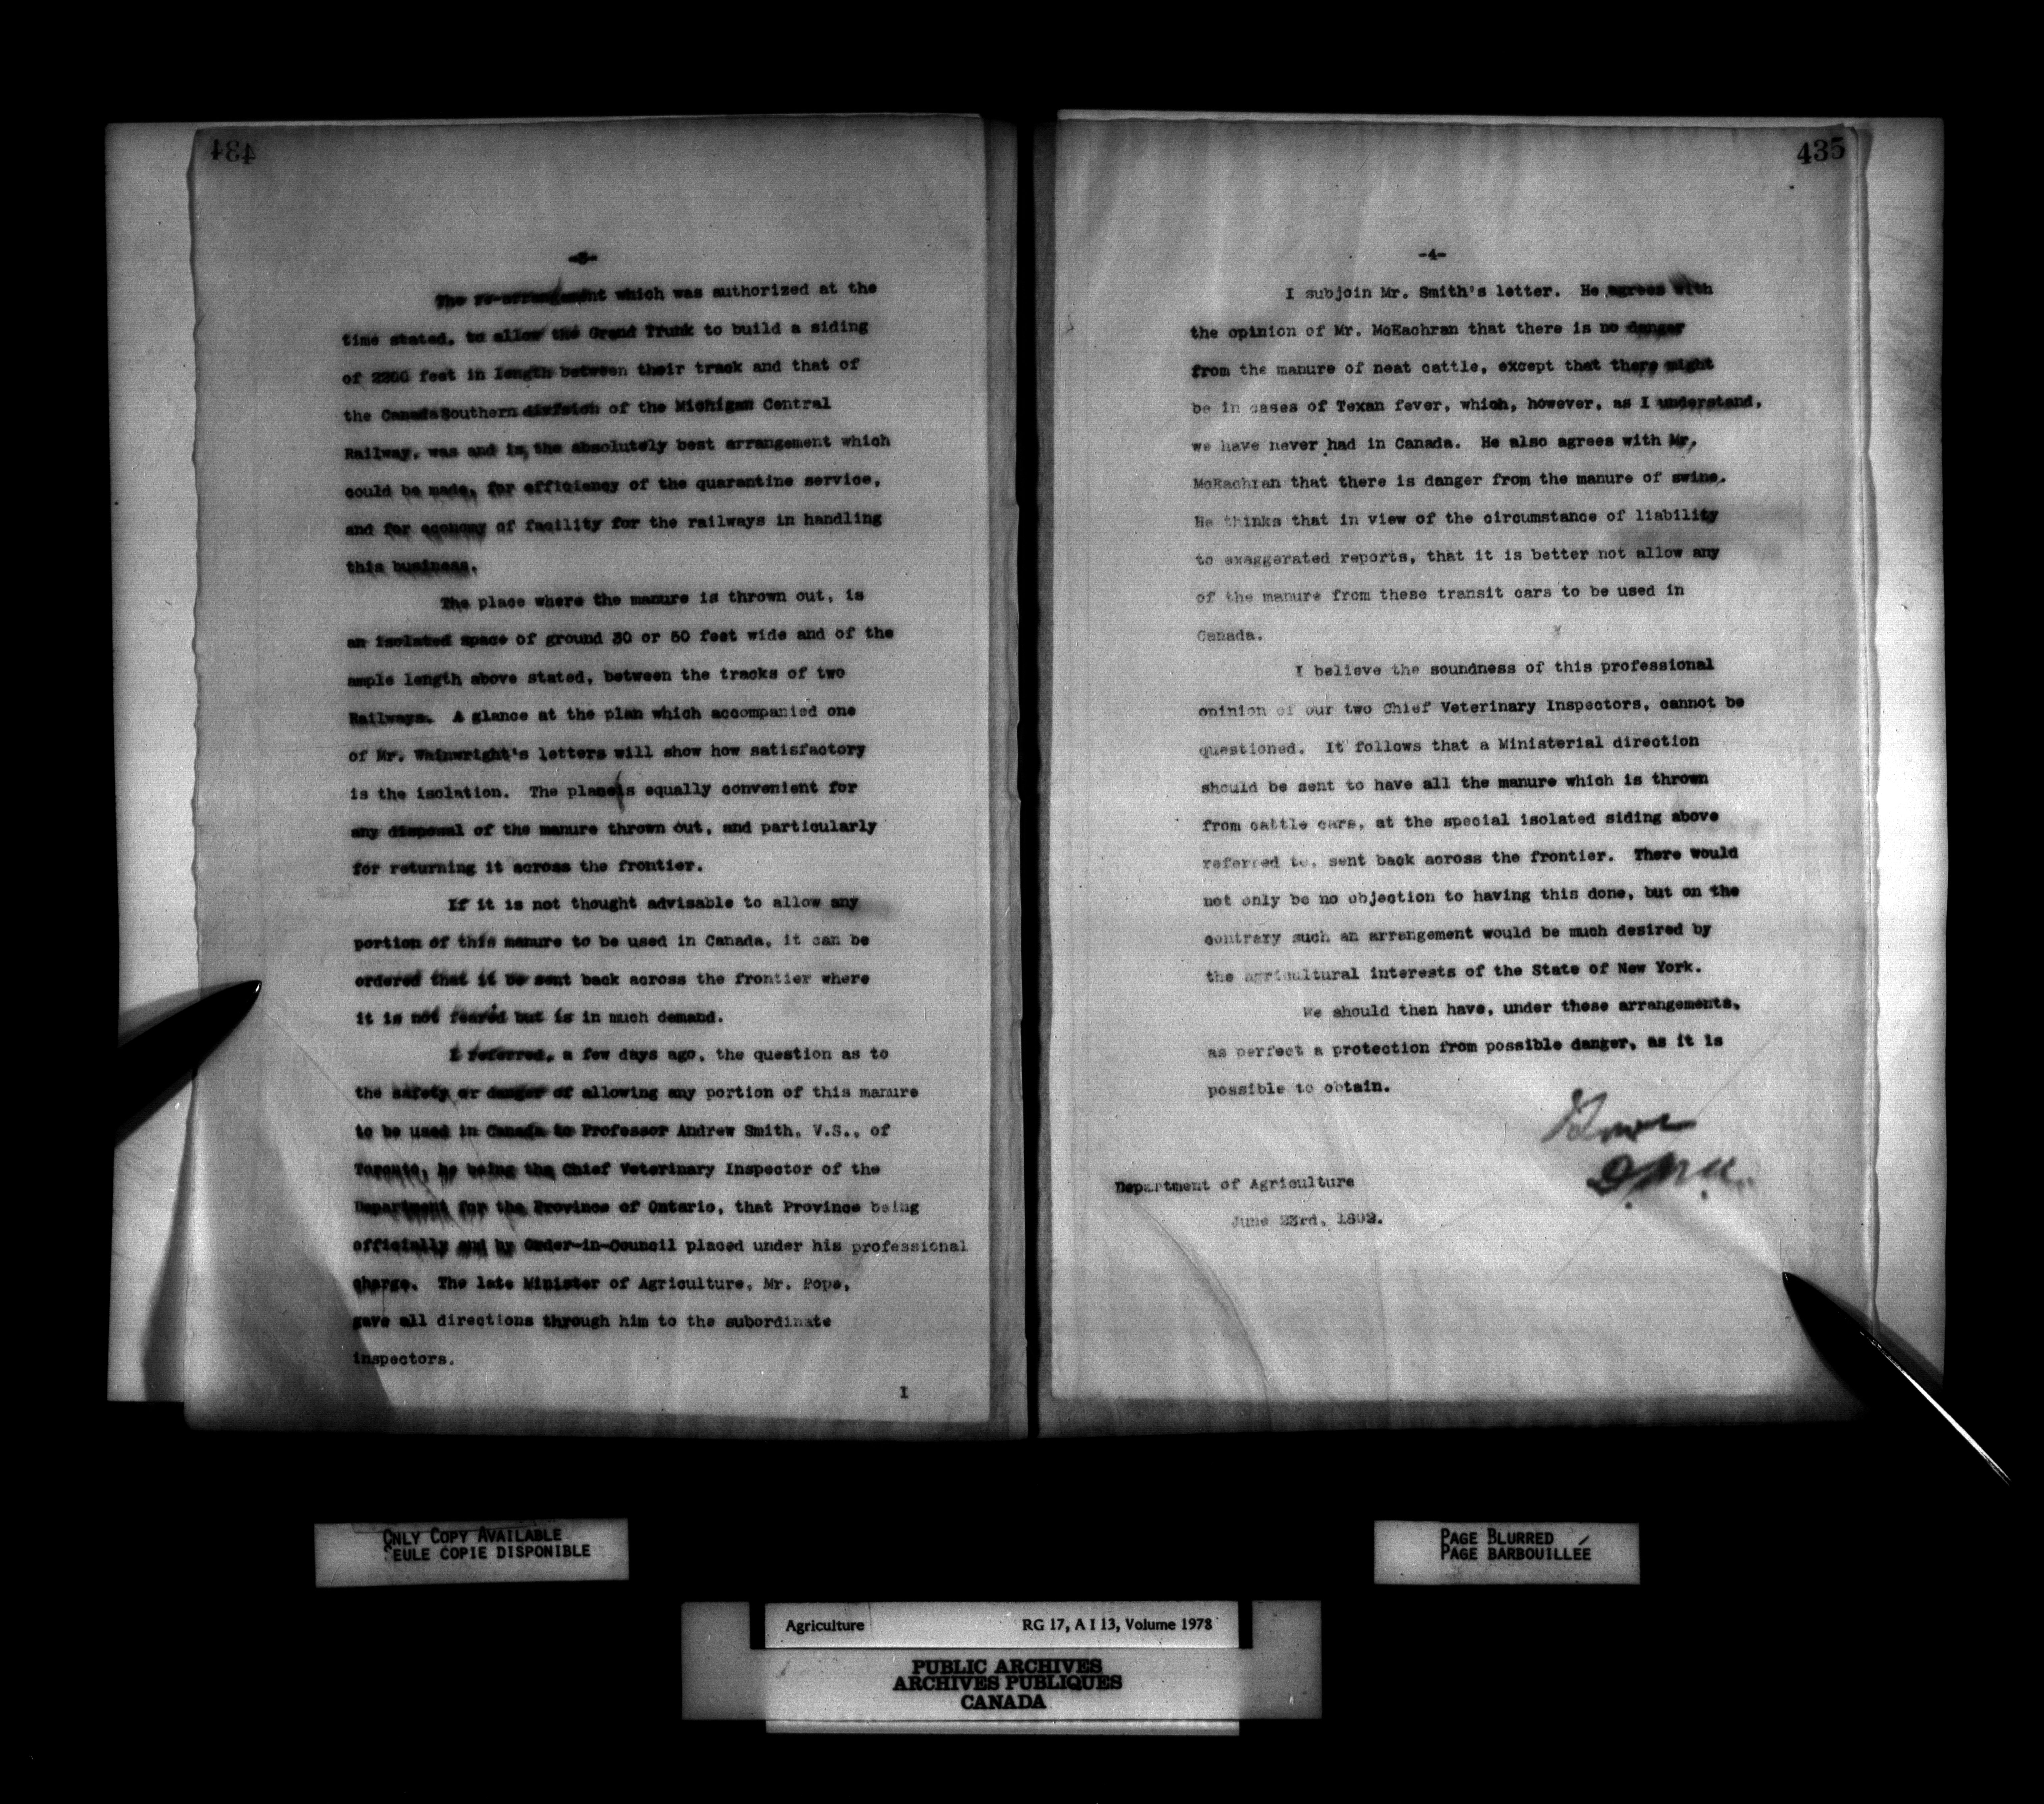 434
-3-
The re-arrangement which was authorized at the
time stated, to allow the Grand Trunk to build a siding
of 2200 feet in length between their track and that of
the Canada Southern division of the Michigan Central
Railway, was and is, the absolutely best arrangement which
could be made, for efficiency of the quarantine service,
and for economy of facility for the railways in handling
this business.
The place where the manure is thrown out, is
an isolated space of ground 30 or 50 feet wide and of the
ample length above stated, between the tracks of two
Railways. A glance at the plan which accompanied one
of Mr. Wainwright's letters will show how satisfactory
is the isolation. The place is equally convenient for
any disposal of the manure thrown out, and particularly
for returning it across the frontier.
If it is not thought advisable to allow any
portion of this manure to be used in Canada, it can be
ordered that it be sent back across the frontier where
it is not feared but is in much demand.
I referred, a few days ago, the question as to
the safety or danger of allowing any portion of this manure
to be used in Canada to Professor Andrew Smith, V.S., of
Toronto, he being the Chief Veterinary Inspector of the
Department for the Province of Ontario, that Province being
officially and by Order-in-Council placed under his professional
charge. The late Minister of Agriculture, Mr. Pope,
gave all directions through him to the subordinate
inspectors.
I
435
-4-
I subjoin Mr. Smith's letter. He agrees with
the opinion of Mr. McEachran that there is no danger
from the manure of neat cattle, except that there might
be in cases of Texan fever, which, however, as I understand,
we have never had in Canada. He also agrees with Mr.
McEachran that there is danger from the manure of swine.
He thinks that in view of the circumstance of liability
to exaggerated reports, that it is better not allow any
of the manure from these transit cars to be used in
Canada.
I believe the soundness of this professional
opinion of our two Chief Veterinary Inspectors, cannot be
questioned. It follows that a Ministerial direction
should be sent to have all the manure which is thrown
from cattle cars, at the special isolated siding above
referred to, sent back across the frontier. There would
not only be no objection to having this done, but on the
contrary such an arrangement would be much desired by
the agricultural interests of the State of New York.
We should then have, under these arrangements,
as perfect a protection from possible danger, as it is
possible to obtain.
Department of Agriculture
June 23rd, 1892.
ONLY COPY AVAILABLE
SEULE COPIE DISPONIBLE
PAGE BLURRED
PAGE BARBOUILLÉE
Agriculture RG 17, A I 13, Volume 1978
PUBLIC ARCHIVES
ARCHIVES PUBLIQUES
CANADA